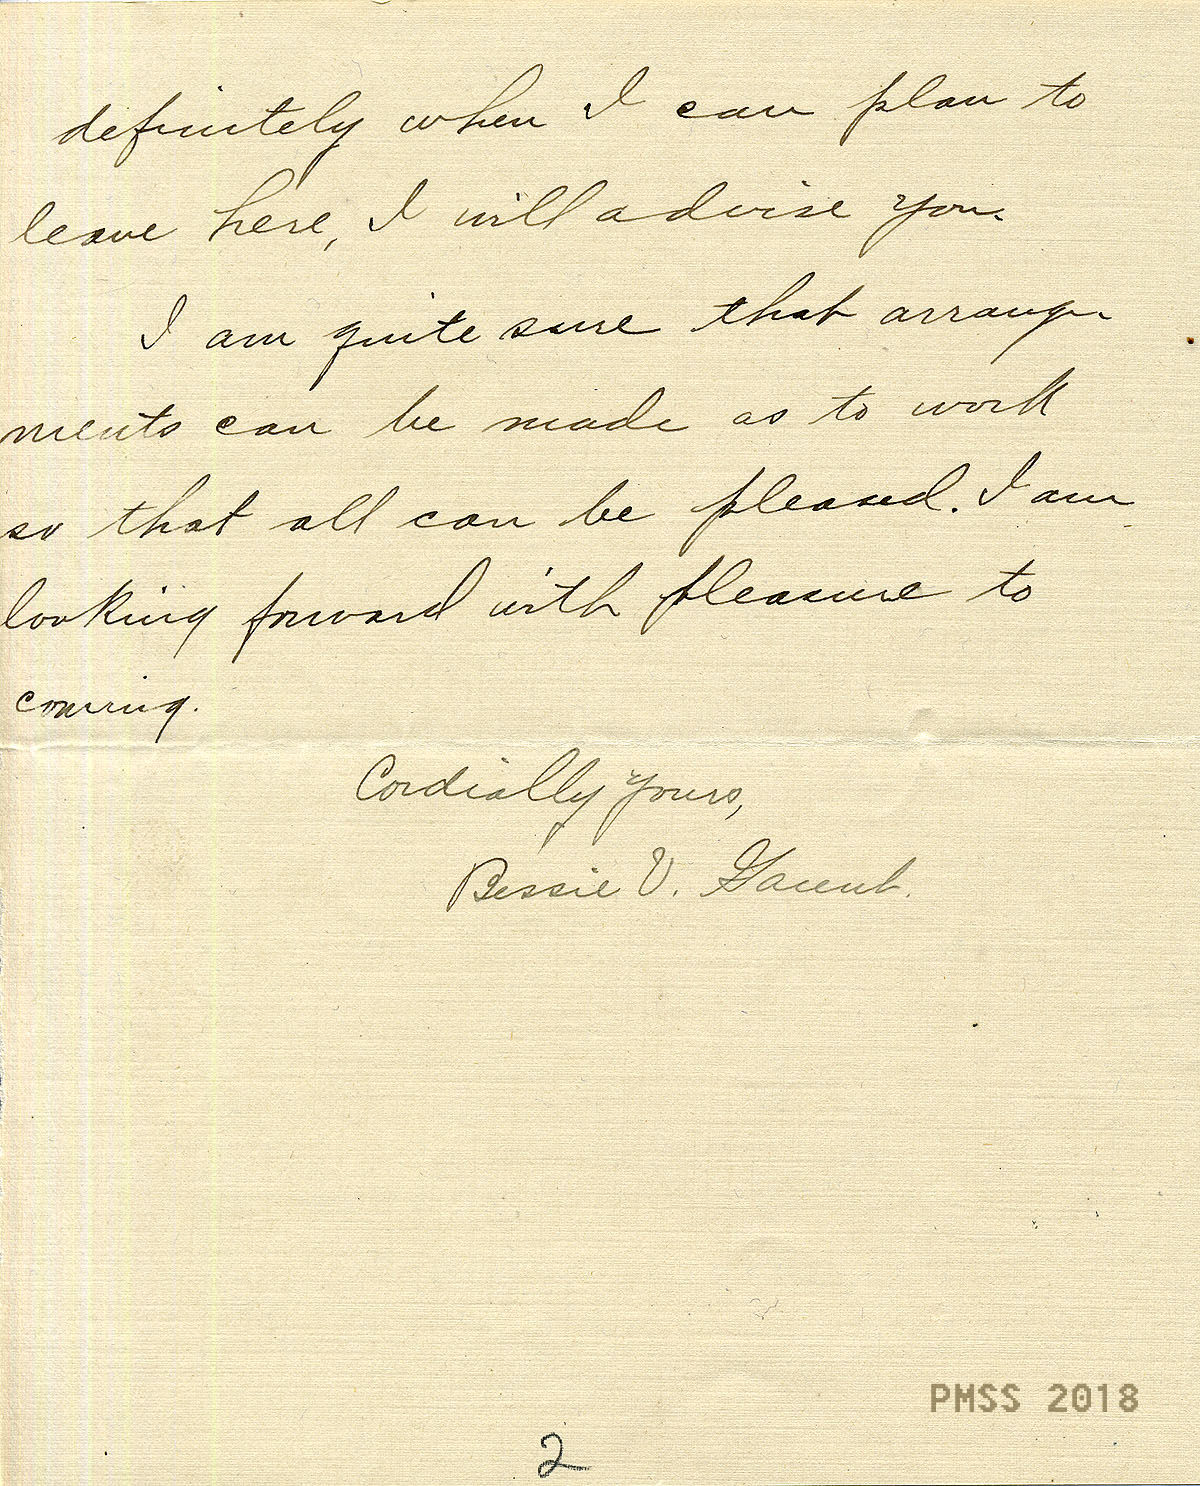 definitely when I can plan to
leave here, I will advise you.
I am quite sure that arrange-
ments can be made as to work
so that all can be pleased. I am
looking forward with pleasure to
coming.
Cordially yours,
Bessie V.
PMSS 2018
2